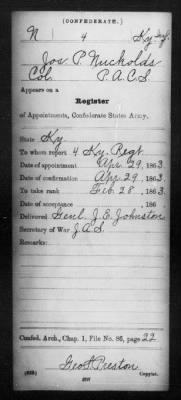 (CONFEDERATE.)
N 4 Ky Inf.
Jos P. Nuckolds
Col. P.A.C.S.
Appears on a
Register
of Appointments, Confederate States Army.
State Ky
To whom report 4 Ky. Regt.
Date of appointment Apr 29, 1863.
Date of confirmation Apr 29, 1863
To take rank Feb. 28, 1863.
Date of acceptance , 186 .
Delivered Genl. J. E. Johnston
Secretary of War J.A.S.
Remarks:
Confed. Arch., Chap. 1, File No. 86, page 22
Geo. S. Preston
Copyist.